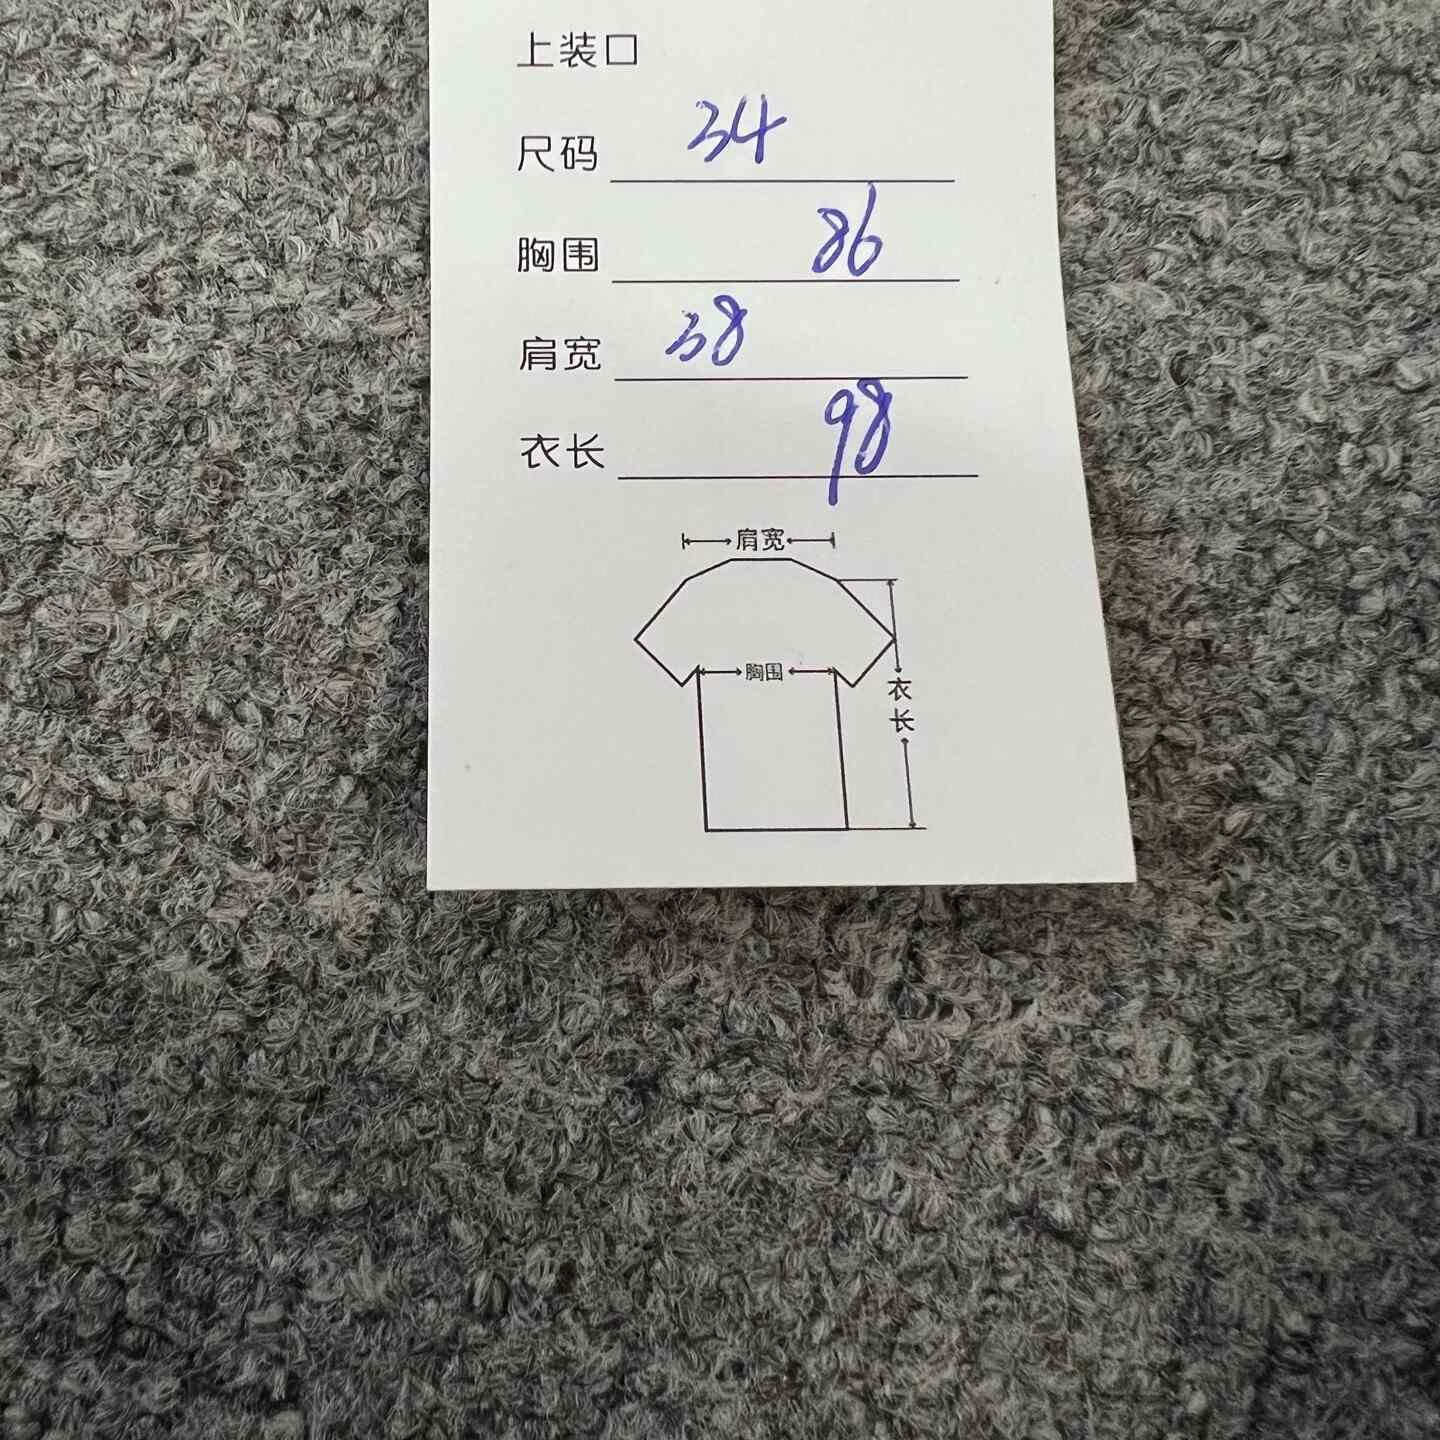 上装口
尺码 34
胸围 86
肩宽 38
衣长 98
肩宽
胸围
衣
长